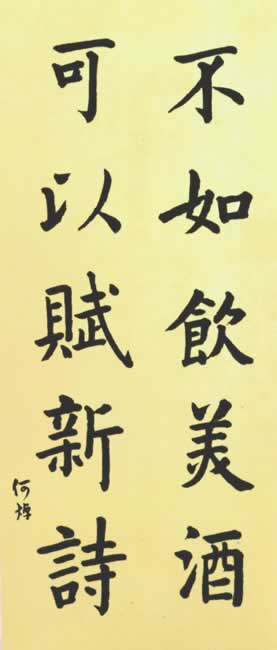 不如飲美酒
可以賦新詩
何焯